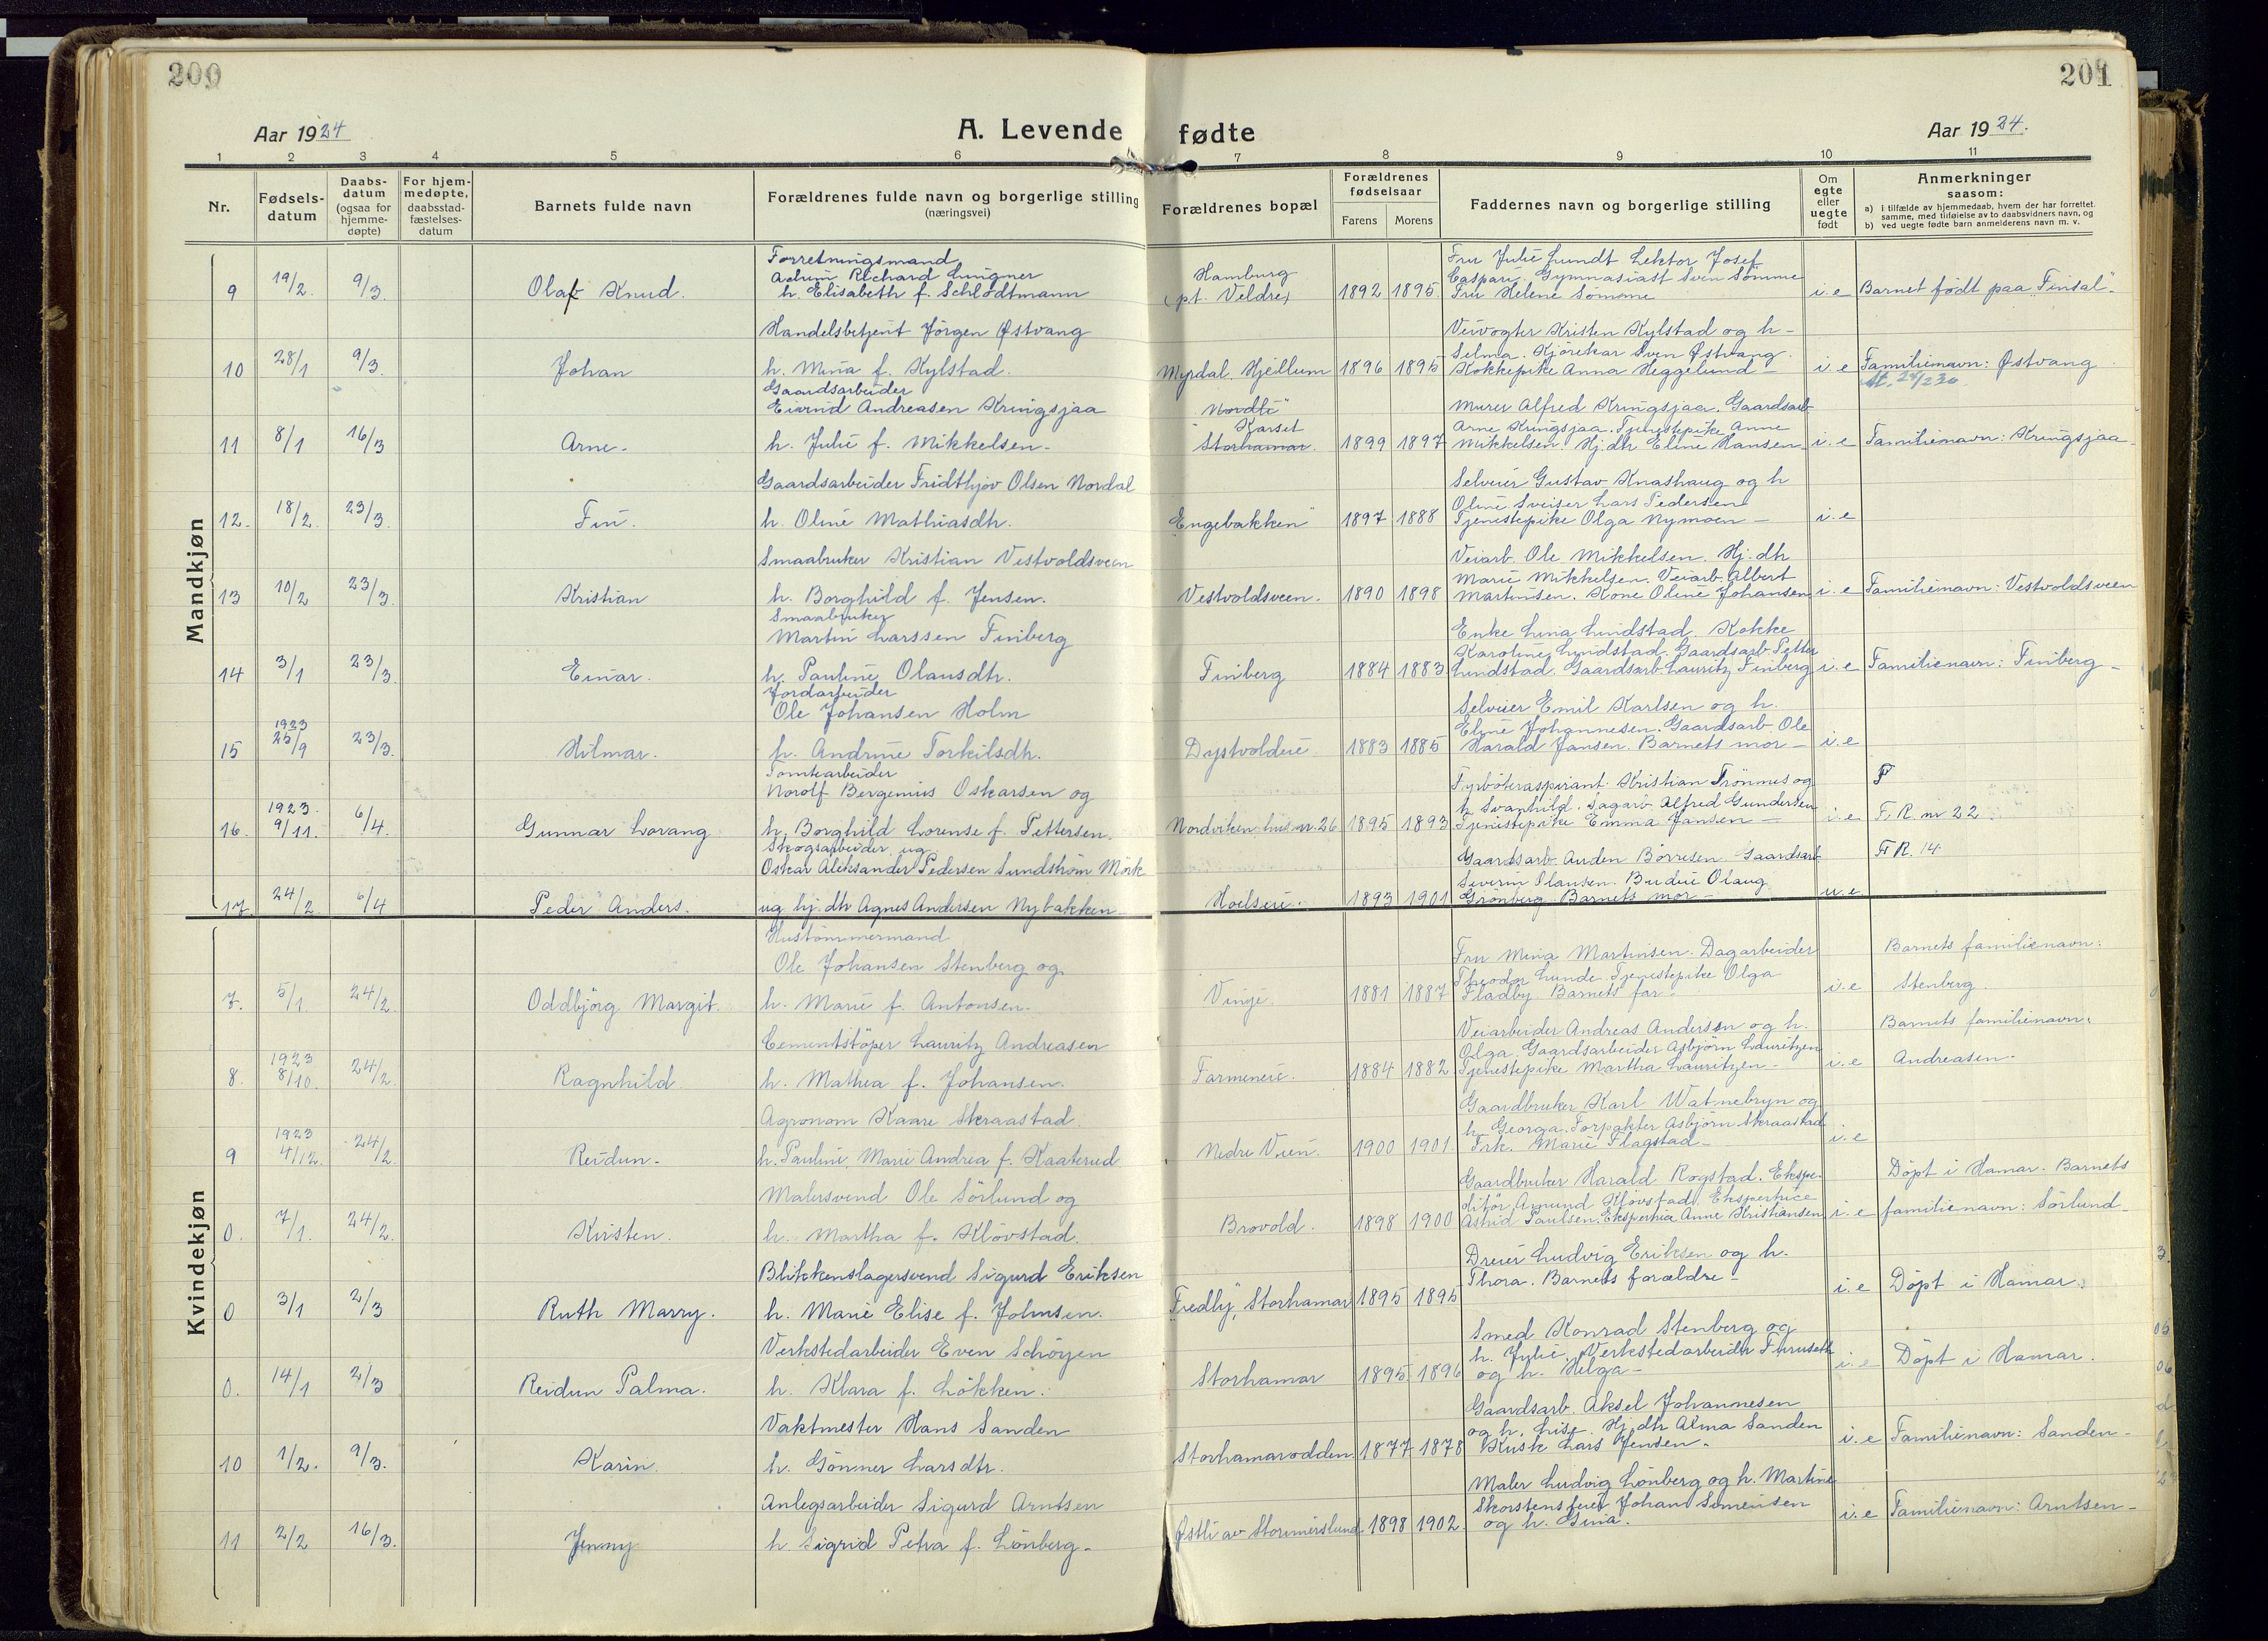 200
201
Aar 1924
A. Levende fødte
Aar 1924.
1 2 3 4 5 6 7 8 9 10 11
Nr.
Fødsels-
datum
Daabs-
datum
(ogsaa for
hjemme-
døpte)
For hjem-
medøpte,
daabsstad-
fæstelses-
datum
Barnets fulde navn
Forældrenes fulde navn og borgerlige stilling
(næringsvei)
Forældrenes bopæl
Forældrenes
fødselsaar
Farens Morens
Faddernes navn og borgerlige stilling
Om
egte
eller
uegte
født
Anmerkninger
saasom:
a) i tilfælde av hjemmedaab, hvem der har forrettet
samme, med tilføielse av to daabsvidners navn, og
b) ved uegte fødte barn anmelderens navn m. v.
Mandkjøn
9 19/2. 9/3. Olaf Knud.
Forretningsmand
Richard Lingner
h. Elisabeth f. Schlodtmann
Hamburg
(pt. Veldre)
1892 1895.
Fru Julie Lundt Lektor Josef
Caspari. Gymnasiast Sven Sømme
Fru Helene Sømme
i. e Barnet født paa "Finsal".
10 28/1 9/3. Johan
Handelsbetjent Jörgen Østvang
h. Mina f. Kylstad.
Myrdal. Hjellum 1896 1895
Veivogter Kristen Kylstad og h-
Selma. Kjørekar Sven Østvang.
Kokkepike Anna Heggelund-
i. e Familienavn: Østvang
11 8/1 16/3 Arne-
Gaardsarbeider
Eivind Andreasen Kringsjaa
h. Julie f. Mikkelsen-
"Nordli"
Karset
Storhamar.
1899 1897
Murer Alfred Kringsjaa. Gaardsarb
Arne Kringsjaa. Tjenestepike Anne
Mikkelsen. Hj.dtr Eline Hansen-
i. e Familienavn: Kringsjaa-
12. 18/2. 23/3. Fin.
Gaardsarbeider Fridthjov Olsen Nordal
h. Oline Mathiasdtr.
"Engebakken" 1897 1888
Selveier Gustav Knashaug og h
Oline Sveiser Lars Pedersen
Tjenestepike Olga Nymoen-
i. e
13 10/2 23/3. Kristian
Smaabruker Kristian Vestvoldsveen
h. Borghild f. Jensen.
Vestvoldsveen. 1890 1898
Veiarb. Ole Mikkelsen. Hj.dtr
Marie Mikkelsen. Veiarb. Albert
Martinsen. Kone Oline Johansen
i. e Familienavn: Vestvoldsveen
14 3/1 23/3. Einar.
Smaabruker
Martin Larssen Finberg
h. Pauline Olausdtr.
Finberg 1884 1883
Enke Lina Lindstad. Kokke
Karoline Lundstad. Gaardsarb. Petter
Lundstad. Gaardsarb. Lauritz Finberg
i. e Familienavn: Finberg-
15 1923 25/9 23/3. Hilmar.
Jordarbeider
Ole Johansen Holm
h. Andrine Torkilsdtr.
Dystvoldeie 1883 1885
Selveier Emil Karlsen og h.
Eline Johannesen. Gaardsarb. Ole
Harald Jansen. Barnets mor-
i. e
16. 1923. 9/11. 6/4. Gunnar Lorang
Tomtearbeider
Norolf Bergenius Oskarsen og
h. Borghild Lorense f. Pettersen.
Nordviken hus nr. 26 1895 1893
Fyrbøteraspirant Kristian Trönnes og
h. Svanhild. Sagarb. Alfred Gundersen
Tjenestepike Emma Jansen-
i. e F. R. nr 22
17. 24/2 6/4 Peder Anders.
Skogsarbeider ug.
Oskar Aleksander Pedersen Sundstrøm Mörk
ug hj. dtr Agnes Andersen Nybakken-
Hoelseie. 1893 1901
Gaardsarb. Anden Børresen. Gaardsarb
Severin Olausen. Budeie Olaug
Grönberg. Barnets mor-
u. e.
F. R. 14
Kvindekjøn
7. 5/1. 24/2. Oddbjörg Margit.
Hustömmermand
Ole Johansen Stenberg og
h. Marie f. Antonsen.
Vinje. 1881 1887
Fru Mina Martinsen. Dagarbeider
Theodor Lunde. Tjenestepike Olga
Fladby. Barnets far-
i. e
Barnets familienavn:
Stenberg.
8. 1923 8/10. 24/2. Ragnhild
Cementstöper Lauritz Andreasen
h. Mathea f. Johansen.
Farmeneie. 1884 1882.
Veiarbeider Andreas Andersen og h.
Olga. Gaardsarbeider Asbjörn Lauritzen
Tjenestepike Martha Lauritzen-
i. e
Barnets familienavn:
Andreasen-
9 1923 4/12. 24/2. Reidun-
Agronom Kaare Skraastad.
h. Pauline Marie Andrea f. Kaaterud
Nedre Vien. 1900 1901.
Gaardbruker Karl Watnebryn og
h. Georga. Forpakter Asbjörn Skraastad
Frk. Marie Flagstad-
i. e
0. 7/1. 24/2. Kirsten.
Malersvend Ole Sörlund og
h. Martha f. Klövstad.
Brovold. 1898 1900
Gaardbruker Harald Rogstad. Ekspe-
ditör Amund Klövstad. Ekspertrice
Astrid Paulsen. Anne Kristiansen
i. e
Döpt i Hamar. Barnets
familienavn: Sörlund-
0 3/1 2/3 Ruth Marry.
Blikkenslagersvend Sigurd Eriksen
h. Marie Elise f. Johnsen.
"Fredly", Storhamar 1895 1896
Dreier Ludvig Eriksen og h.
Thora. Barnets forældre-
i. e Döpt i Hamar.
0. 14/1 2/3 Reidun Palma.
Verkstedarbeider Even Schöyen
h. Klara f. Lökken.
Storhamar 1895 1896
Smed Konrad Stenberg og
h. Julie. Verkstedarbeider Furuseth
og h. Helga-
i. e Döpt i Hamar.
10 1/2. 9/3. Karin.
Vaktmester Hans Sanden
h. Gönner Larsdtr.
Storhamarodden. 1877 1878
Gaardsarb. Aksel Johannesen
og h. Lise. Hj.dtr Alma Sanden
Kusk Lars Jensen-
i. e Familienavn: Sanden-
11 2/2 16/3. Jenny
Anlegsarbeider Sigurd Arntsen
h. Sigrid Petra f. Lönberg-
Østli av Stormerslund 1898 1902.
Maler Ludvig Lönberg og h. Martine
Skorstensfeier Johan Simensen
og h. Gina.
i. e Familienavn: Arntsen-